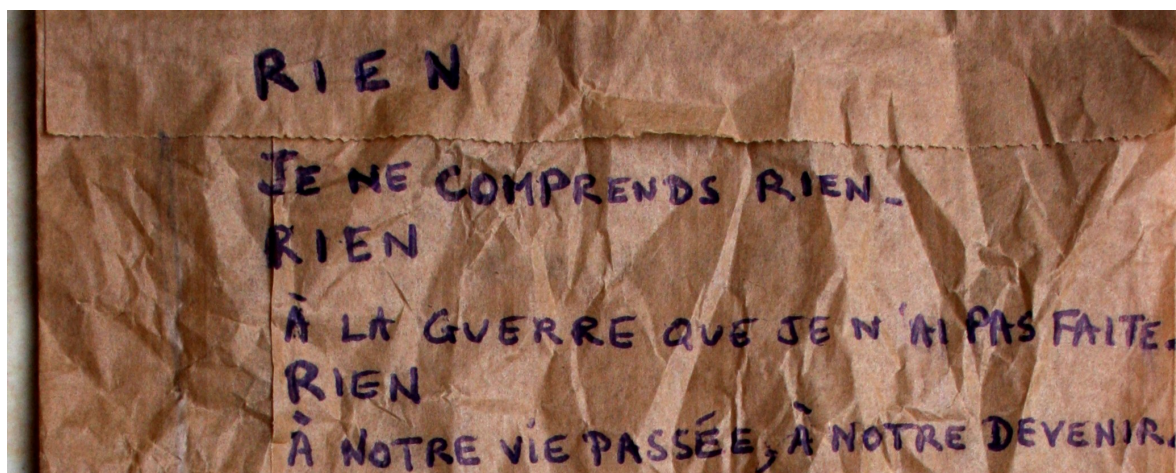 RIEN
JE NE COMPRENDS RIEN_
RIEN
À LA GUERRE QUE JE N'AI PAS FAITE.
RIEN
À NOTRE VIE PASSÉE, À NOTRE DEVENIR.